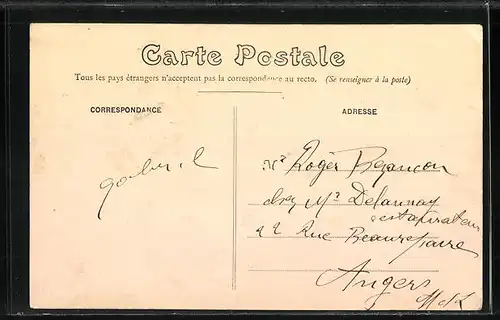 Carte Postale
Tous les pays étrangers n'acceptent pas la correspondance au recto. (Se renseigner à la poste)
CORRESPONDANCE
ADRESSE
gabriel
Mr Roger Bezançon
chez Mr Delaunay
22 Rue Beaurepaire
Angers
M & L